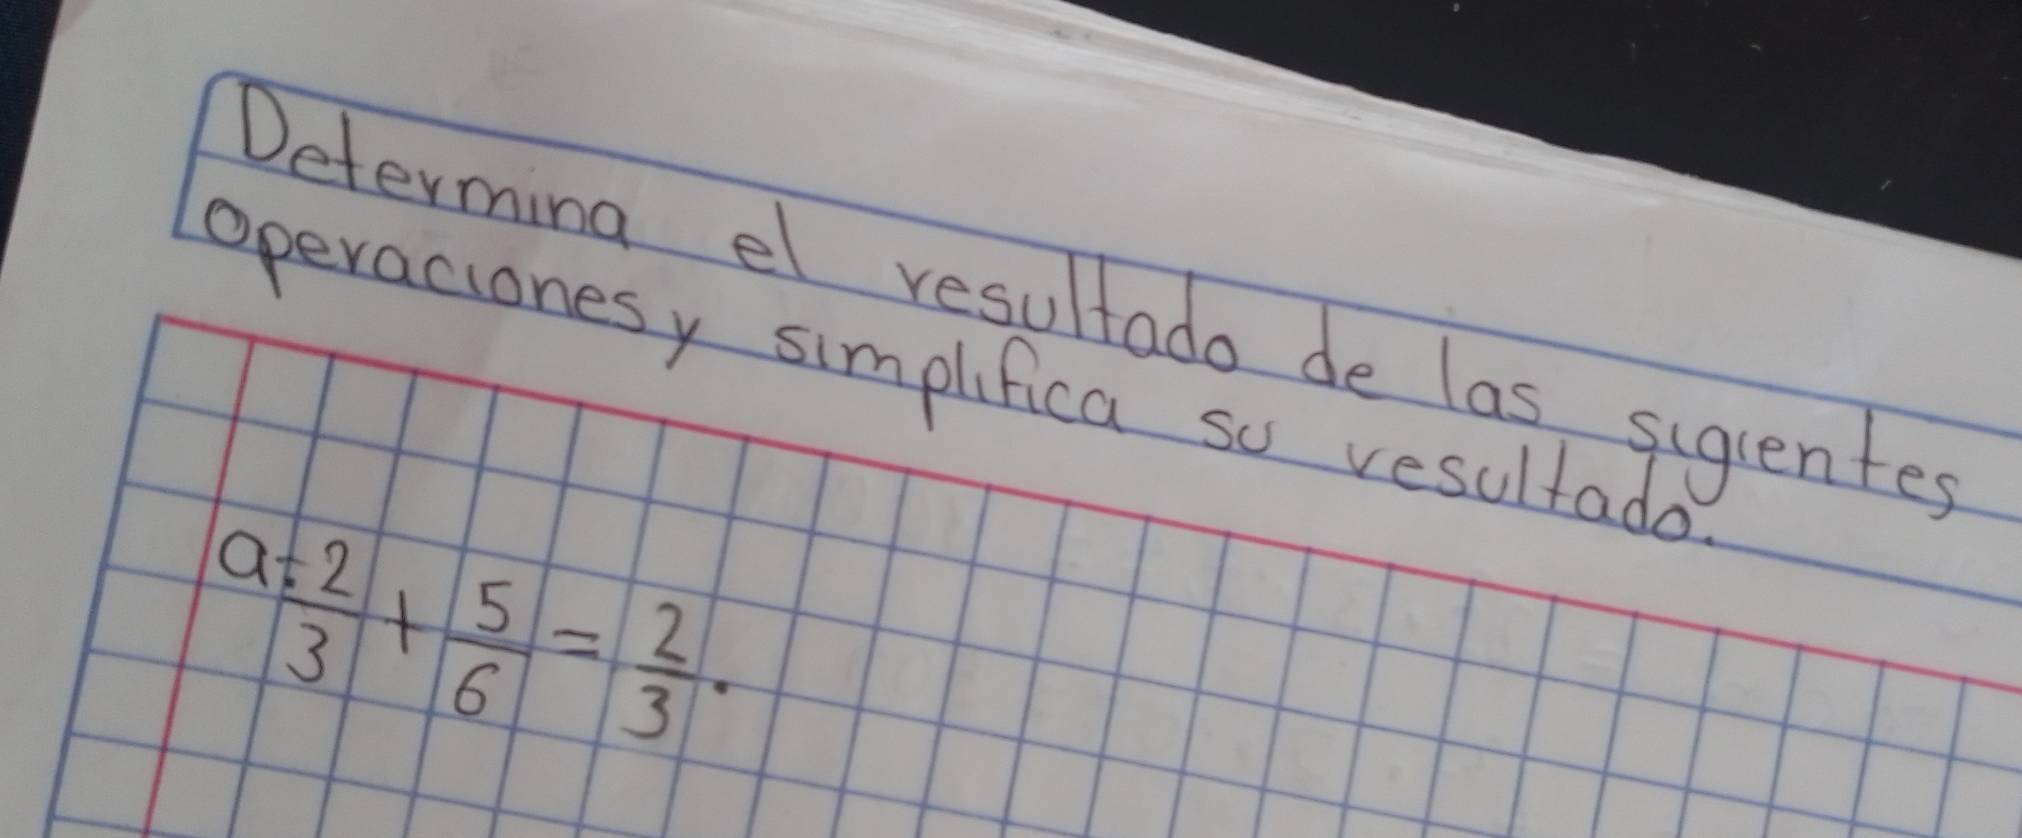 Determina el resultado de las sigientes
operaciones y simplifica su resultado.
a÷ 2/3 + 5/6 = 2/3.